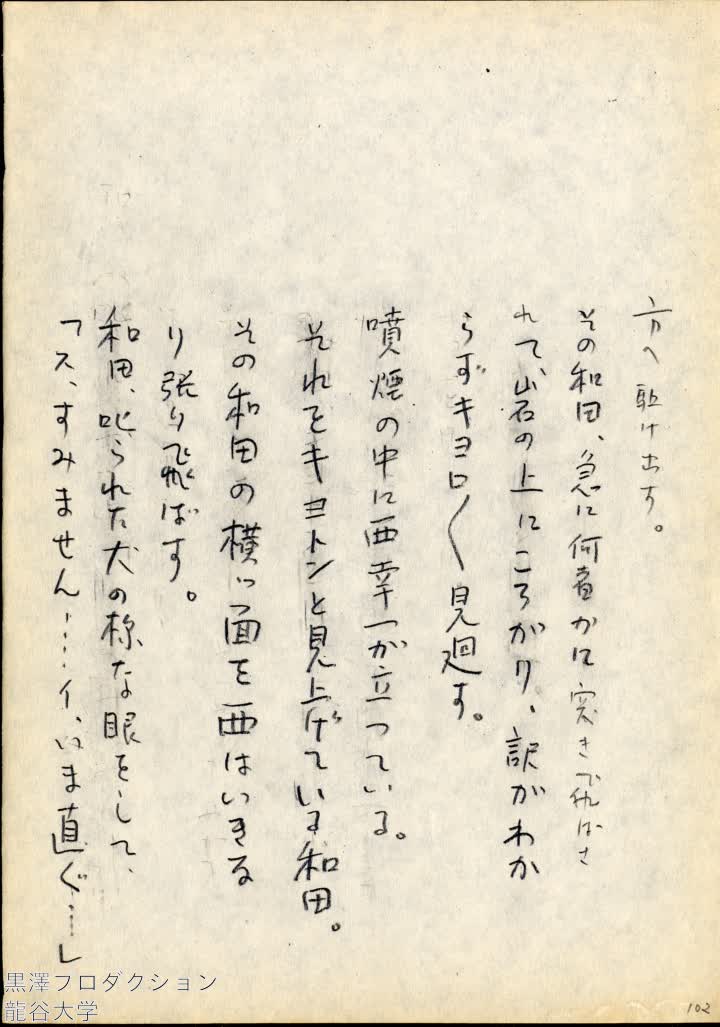 方へ駈け出す。
その和田、急に何者かに突き飛ばさ
れて、岩の上にころがり、訳がわか
らずキョロ〱見廻す。
噴煙の中に西幸一が立つている。
それをキョトンと見上げている和田。
その和田の横ッ面を西はいきな
り張り飛ばす。
和田、叱られた犬の様な眼をして、
「ス、すみません……イ、いま直ぐ……」
黒澤プロダクション
龍谷大学
102